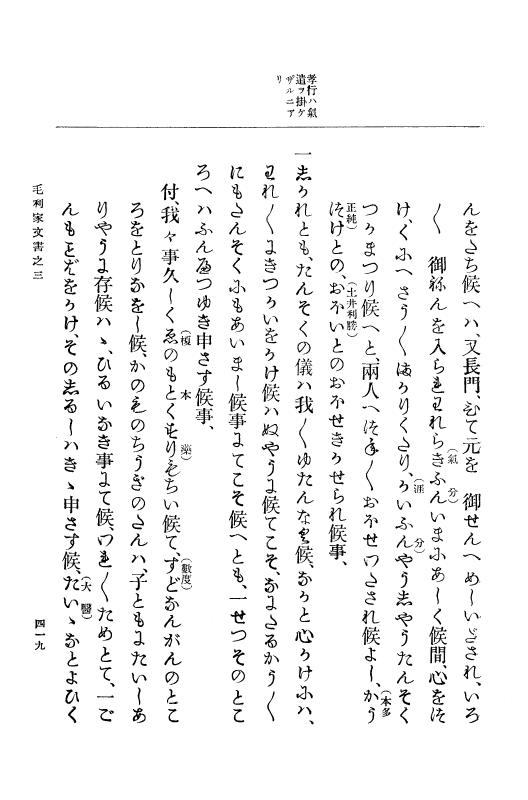 孝行ハ氣
遣ヲ掛ケ
ザルニア
リ
んをたち候へハ、又長門、むて元を　御せんへめしいだされ、いろ
〱　御ねんを入られ、われらきふんいまにあしく候間、心をつ
(氣分)
け、くにへさう〱まかりくたり、かいふんやうしやうたんそく
(涯分)
つかまつり候へと、兩人へつね〱おほせわたされ候よし、かう
(本多
正純)
つけとの、おほいとのおほせきかせられ候事、
(土井利勝)
一しかれとも、たんそくの儀ハ我〱ゆたんなく候、なかと心かけにハ、
われ〱にきつかいをかけ候ハぬやうに候てこそ、なにたるかう〱
にもたんそくにもあいまし候事にてこそ候へとも、一せつそのとこ
ろへハふんへつゆき申さす候事、
付、我々事久しくゑのもとくすりもちい候て、すどなんがんのとこ
(榎本)
(藥)
(數度)
ろをとりなをし候、かのものちうぎのたんハ、子ともにたいしあ
りやうに存候ハヽ、ひるいなき事にて候、われ〱ためとて、一ご
んもことばをかけ、そのしるしハきヽ申さす候、たいヽなとよひく
(大醫)
毛利家文書之三
四一九